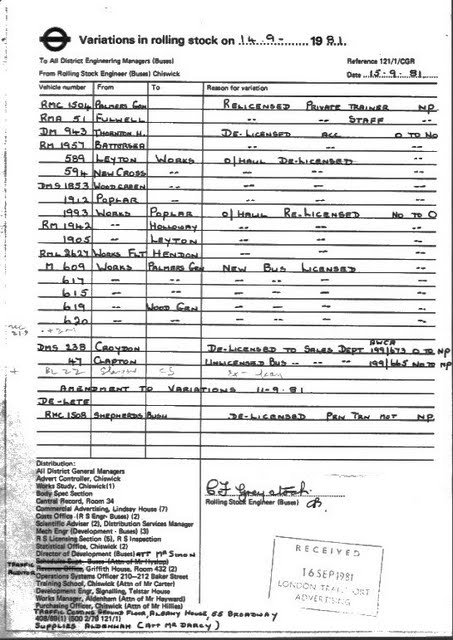 Variations in rolling stock on 14-9- 1981.
To All District Engineering Managers (Buses) Reference 121/1/CGR
From Rolling Stock Engineer (Buses) Chiswick Date 15.9.81
Vehicle number From To Reason for variation
RMC 1504 PALMERS GRN RELICENSED PRIVATE TRAINER NP
RMA 51 FULWELL -- -- STAFF --
DM 943 THORNTON H. DE-LICENSED ACC O TO NO
RM 1957 BATTERSEA -- -- --
589 LEYTON WORKS O/HAUL DE-LICENSED --
594 NEW CROSS -- -- -- --
DMS 1853 WOOD GREEN -- -- -- --
1912 POPLAR -- -- -- --
1993 WORKS POPLAR O/HAUL RE-LICENSED NO TO O
RM 1942 -- HOLLOWAY -- -- --
1905 -- LEYTON -- -- --
RML 2627 WORKS FLT HENDON -- -- --
M 609 WORKS PALMERS GRN NEW BUS LICENSED --
617 -- -- -- -- --
615 -- -- -- -- --
619 -- WOOD GRN -- -- --
620 -- -- -- -- --
DMS 238 CROYDON DE-LICENSED TO SALES DEPT AWCR 199/673 O TO NP
47 CLAPTON UNLICENSED BUS -- -- 199/665 NO TO NP
BL 22 CS
AMENDMENT TO VARIATIONS 11-9-81
DE-LETE
RMC 1508 SHEPHERDS BUSH DE-LICENSED PRN TRN NOT NP
Distribution:
All District General Managers
Advert Controller, Chiswick
Works Study, Chiswick(1)
Body Spec Section
Central Record, Room 34
Commercial Advertising, Lindsay House (7)
Costs Office (R S Engr Buses) (2)
Scientific Adviser (2), Distribution Services Manager
Mech Engr (Development - Buses) (3)
R S Licensing Section (5), R S Inspection
Statistical Office, Chiswick (2)
Director of Development (Buses) ATT MR SIMON
Schedules Supt - Buses (Attn of Mr Hyslop)
TRAFFIC AUDITOR Revenue Office, Griffith House, Room 432 (2)
Operations Systems Officer 210-212 Baker Street
Training School, Chiswick (Attn of Mr Carter)
Development Engr, Signalling, Telstar House
Works Manager, Aldenham (Attn of Mr Hayward)
Purchasing Officer, Chiswick (Attn of Mr Hillies)
TRAFFIC COSTING GROUND FLOOR ALBANY HOUSE 55 BROADWAY
408/89(1) (500 2/79 121/1)
SUPPLIES ALDENHAM (ATT MR DARCY)
Rolling Stock Engineer (Buses)
RECEIVED
16 SEP 1981
LONDON TRANSPORT
ADVERTISING